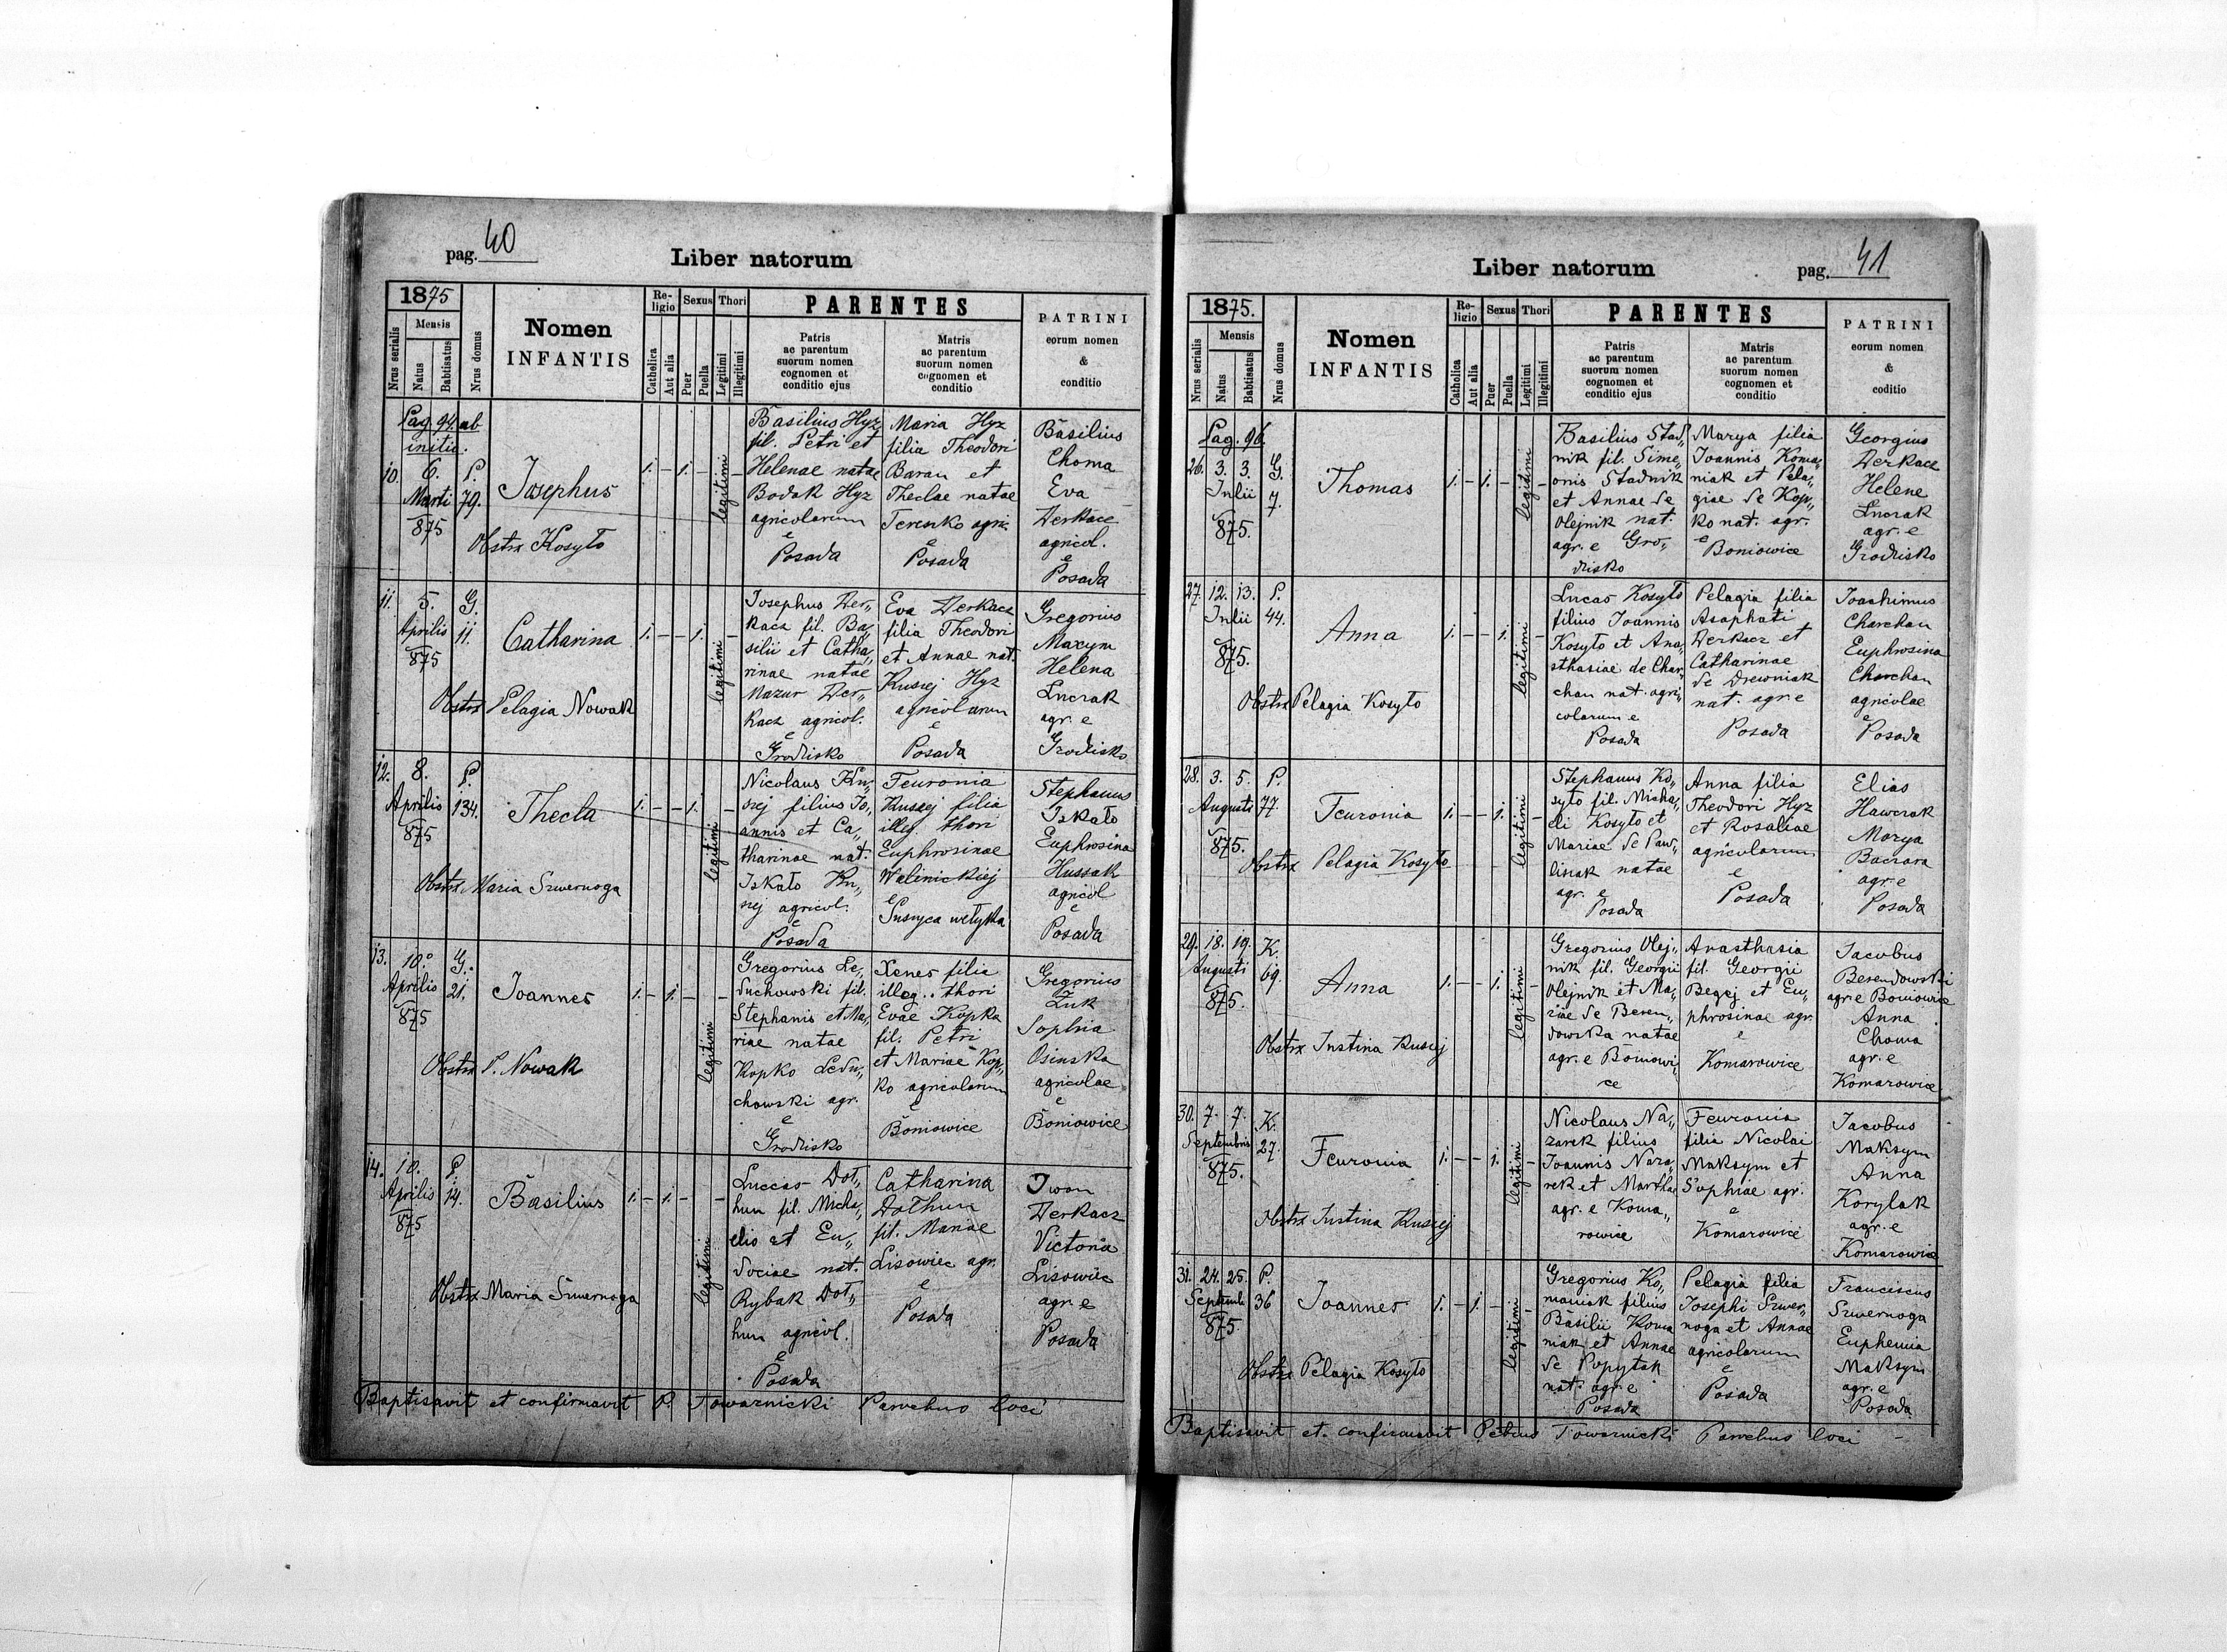 pag. 40
Liber natorum
1875
Nrus serialis
Mensis
Natus
Babtisatus
Nrus domus
Nomen
INFANTIS
Re-
ligio
Catholica
Aut alia
Sexus
Puer
Puella
Thori
Legitimi
Illegitimi
PARENTES
Patris
ac parentum
suorum nomen
cognomen et
conditio ejus
Matris
ac parentum
suorum nomen
cognomen et
conditio
PATRINI
eorum nomen
&
conditio
Pag. 94. ab
initio.
10.
6.
Marti
875
P.
79.
Josephus
Obstrx Kosyło
1. – 1. –
legitimi
–
Basilius Hyz
fil. Petri et
Helenae natae
Bodak Hyz
agricolarum
e
Posada
Maria Hyz
filia Theodori
Baran et
Theclae natae
Terenko agric.
e
Posada
Basilius
Choma
Eva
Derkacz
agricol.
e
Posada
11.
5.
Aprilis
875
G.
11.
Catharina
Obstrx Pelagia Nowak
1. – – 1.
legitimi
–
Josephus Der„
kacz fil. Ba„
silii et Catha„
rinae natae
Mazur Der„
kacz agricol.
e
Grodzisko
Eva Derkacz
filia Theodori
et Annae nat.
Kusiej Hyz
agricolarum
e
Posada
Gregorius
Maxym
Helena
Lucrak
agr. e
Grodzisko
12.
8.
Aprilis
875
P.
134.
Thecla
Obstrx Maria Szwernoga
1. – – 1.
legitimi
–
Nicolaus Ku„
siej filius Jo„
annis et Ca„
tharinae nat.
Iskało Ku„
siej agricol.
e
Posada
Feuronia
Kusiej filia
illeg. thori
Euphrosinae
Walinickiej
e
Susyca wełyka
Stephanus
Iskało
Euphrosina
Hussak
agricol
e
Posada
13.
10.
Aprilis
875
G.
21.
Joannes
Obstrx P. Nowak
1. – 1. –
legitimi
–
Gregorius Le„
duchowski fil.
Stephanis et Ma„
riae natae
Kopko Ledu„
chowski agr.
e
Grodzisko
Xenes filia
illeg. thori
Evae Kopka
fil. Petri
et Mariae Kop„
ko agricolarum
e
Boniowice
Gregorius
Żuk
Sophia
Osinska
agricolae
e
Boniowice
14.
10.
Aprilis
875
P.
14.
Basilius
Obstrx Maria Szwernoga
1. – 1. –
legitimi
–
Luccas Doł„
hun fil. Micha„
elis et Eu„
dociae nat.
Rybak Doł„
hun agricol.
e
Posada
Catharina
Dołhun
fil. Mariae
Lisowiec agr.
e
Posada
Iwan
Derkacz
Victoria
Lisowiec
agr. e
Posada
Baptisavit et confirmavit P. Towarnicki Parochus loci
Liber natorum
pag. 41
1875.
Nrus serialis
Mensis
Natus
Babtisatus
Nrus domus
Nomen
INFANTIS
Re-
ligio
Catholica
Aut alia
Sexus
Puer
Puella
Thori
Legitimi
Illegitimi
PARENTES
Patris
ac parentum
suorum nomen
cognomen et
conditio ejus
Matris
ac parentum
suorum nomen
cognomen et
conditio
PATRINI
eorum nomen
&
coditio
Pag. 96.
26. 3. 3.
Julii
875.
G.
7.
Thomas
1. – 1. –
legitimi
–
Basilius Stad„
nik fil. Sime„
onis Stadnik
et Annae de
Olejnik nat.
agr. e Gro„
dzisko
Marya filia
Joannis Koma„
niak et Pela„
giae de Kop„
ko nat. agr.
e
Boniowice
Georgius
Derkacz
Helene
Lucrak
agr. e
Grodzisko
27. 12. 13.
Julii
875.
P.
44.
Anna
Obstrx Pelagia Kosyło
1. – – 1.
legitimi
–
Lucas Kosyło
filius Joannis
Kosyło et Ana„
sthasiae de Char„
chan nat. agri„
colarum e
Posada
Pelagia filia
Asaphati
Derkacz et
Catharinae
de Drewniak
nat. agr. e
Posada
Joachimus
Charchan
Euphrosina
Charchan
agricolae
e
Posada
28. 3. 5.
Augusti
875.
P.
77
Feuronia
Obstrx Pelagia Kosyło
1. – – 1.
legitimi
–
Stephanus Ko„
syło fil. Micha„
eli Kosyło et
Mariae de Paw„
lisiak natae
agr. e
Posada
Anna filia
Theodori Hyz
et Rosaliae
agricolarum
e
Posada
Elias
Hawczak
Marya
Baczara
agr. e
Posada
29. 18. 19.
Augusti
875.
K.
69.
Anna
Obstrx Justina Kusiej
1. – – 1.
legitimi
–
Gregorius Olej„
nik fil. Georgii
Olejnik et Ma„
riae de Beren„
dowska natae
agr. e Boniowi„
ce
Anasthasia
fil. Georgii
Begej et Eu„
phrosinae agr.
e
Komarowice
Jacobus
Berendowski
agr. e Boniowice
Anna
Choma
agr. e
Komarowice
30. 7. 7.
Septembris
875.
K.
27.
Feuronia
Obstrx Justina Kusiej
1. – – 1.
legitimi
–
Nicolaus Na„
zarek filius
Joannis Naza„
rek et Marthae
agr. e Koma„
rowice
Feuronia
filia Nicolai
Maksym et
Sophiae agr.
e
Komarowice
Jacobus
Maksym
Anna
Korylak
agr. e
Komarowice
31. 24. 25.
Septemb.
875.
P.
36
Joannes
Obstrx Pelagia Kosyło
1. – 1. –
legitimi
–
Gregorius Ko„
maniak filius
Basilii Koma
niak et Annae
de Popytak
nat. agr. e
Posada
Pelagia filia
Josephi Szwer„
noga et Annae
agricolarum
e
Posada
Franciscus
Szwernoga
Euphemia
Maksym
agr. e
Posada
Baptisavit et confirmavit Petrus Towarnicki Parochus loci